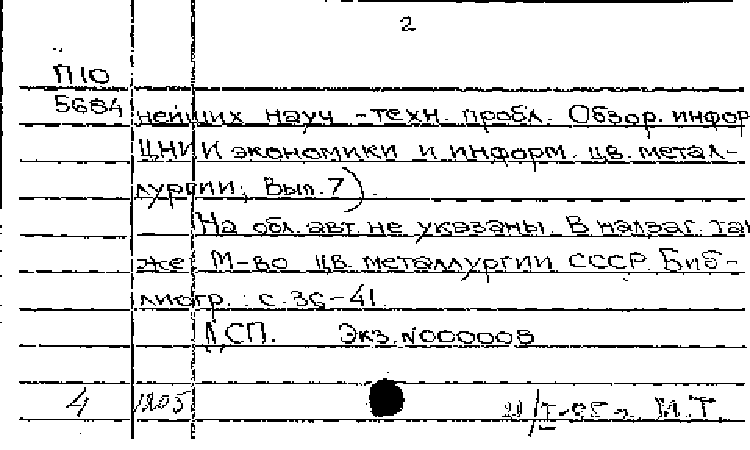 2
П10
5684 нейших науч-техн. пробл. Обзор. инфор
ЦНИИ экономики и информ. цв. метал-
лургии; Вып. 7).
На обл. авт. не указаны. В надзаг. так
же: М-во цв. металлургии СССР. Биб-
лиогр.: с. 36-41.
ДСП. Экз. N000008
4 1205 М.Т.